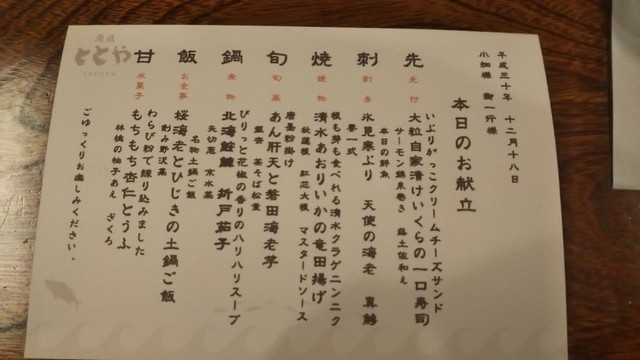 平成三十年 十二月十八日
小畑様 御一行様
本日のお献立
先
先付
いぶりがっこクリームチーズサンド
大粒自家漬けいくらの一口寿司
サーモン錦糸巻き 錦土佐和え
刺
刺身
本日の鮮魚
氷見寒ぶり 天使の海老 真鯵
妻一式
焼
焼物
根も芽も食べれる清水クラゲニンニク
清水あおりいかの竜田揚げ
秋蓮根 紅花大根 マスタードソース
旬
旬菜
唐墨粉掛け
あん肝天と磐田海老芋
銀杏 茶そば松葉
鍋
煮物
ぴりっと花椒の香りのハリハリスープ
北海鮟鱇 折戸茄子
矢切葱 京水菜
飯
お食事
名物土鍋ご飯
桜海老とひじきの土鍋ご飯
刻み野沢菜
甘
水菓子
わらび粉で練り込みました
もちもち杏仁とうふ
林檎の柚子あえ ざくろ
ごゆっくりお楽しみください。
魚匠
ととや
TOTOYA